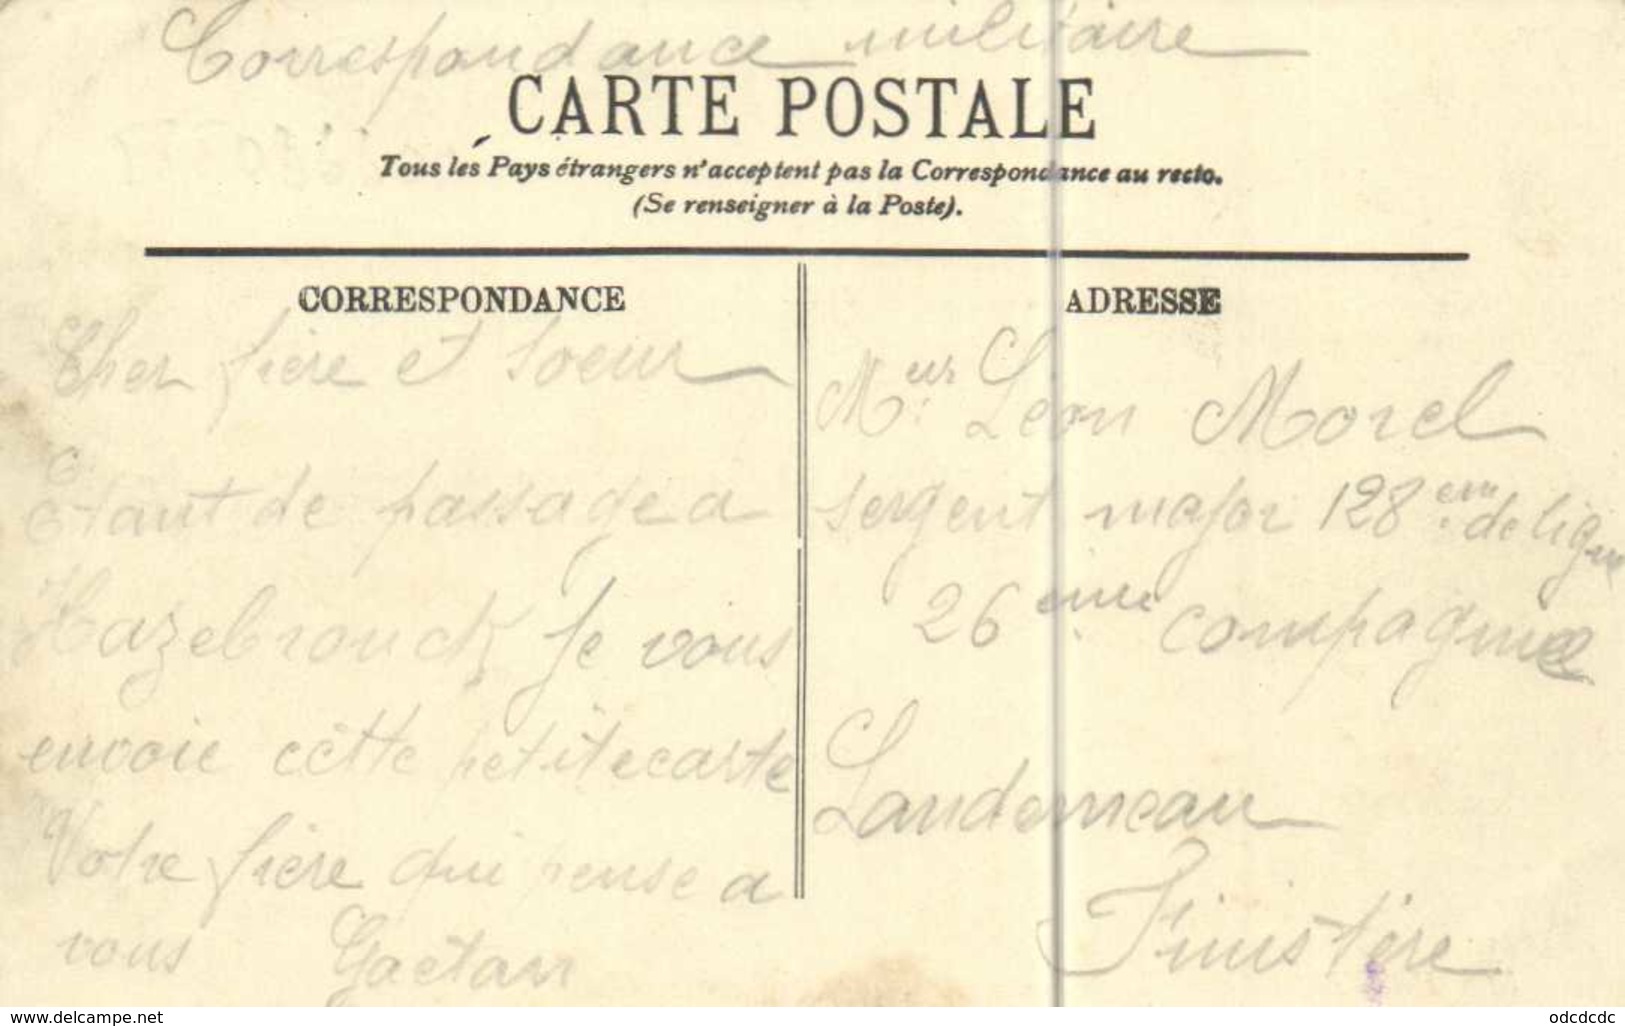 Correspondance militaire
CARTE POSTALE
Tous les Pays étrangers n'acceptent pas la Correspondance au recto.
(Se renseigner à la Poste).
CORRESPONDANCE
Cher frère et soeur
Etant de passage a
Hazebrouck Je vous
envoie cette petite carte
Votre frère qui pense a
vous Gaëtan
ADRESSE
Meur Léon Morel
sergent major 128eme de ligne
26eme compagnie
Landerneau
Finistère
www.delcampe.net
odcdcdc